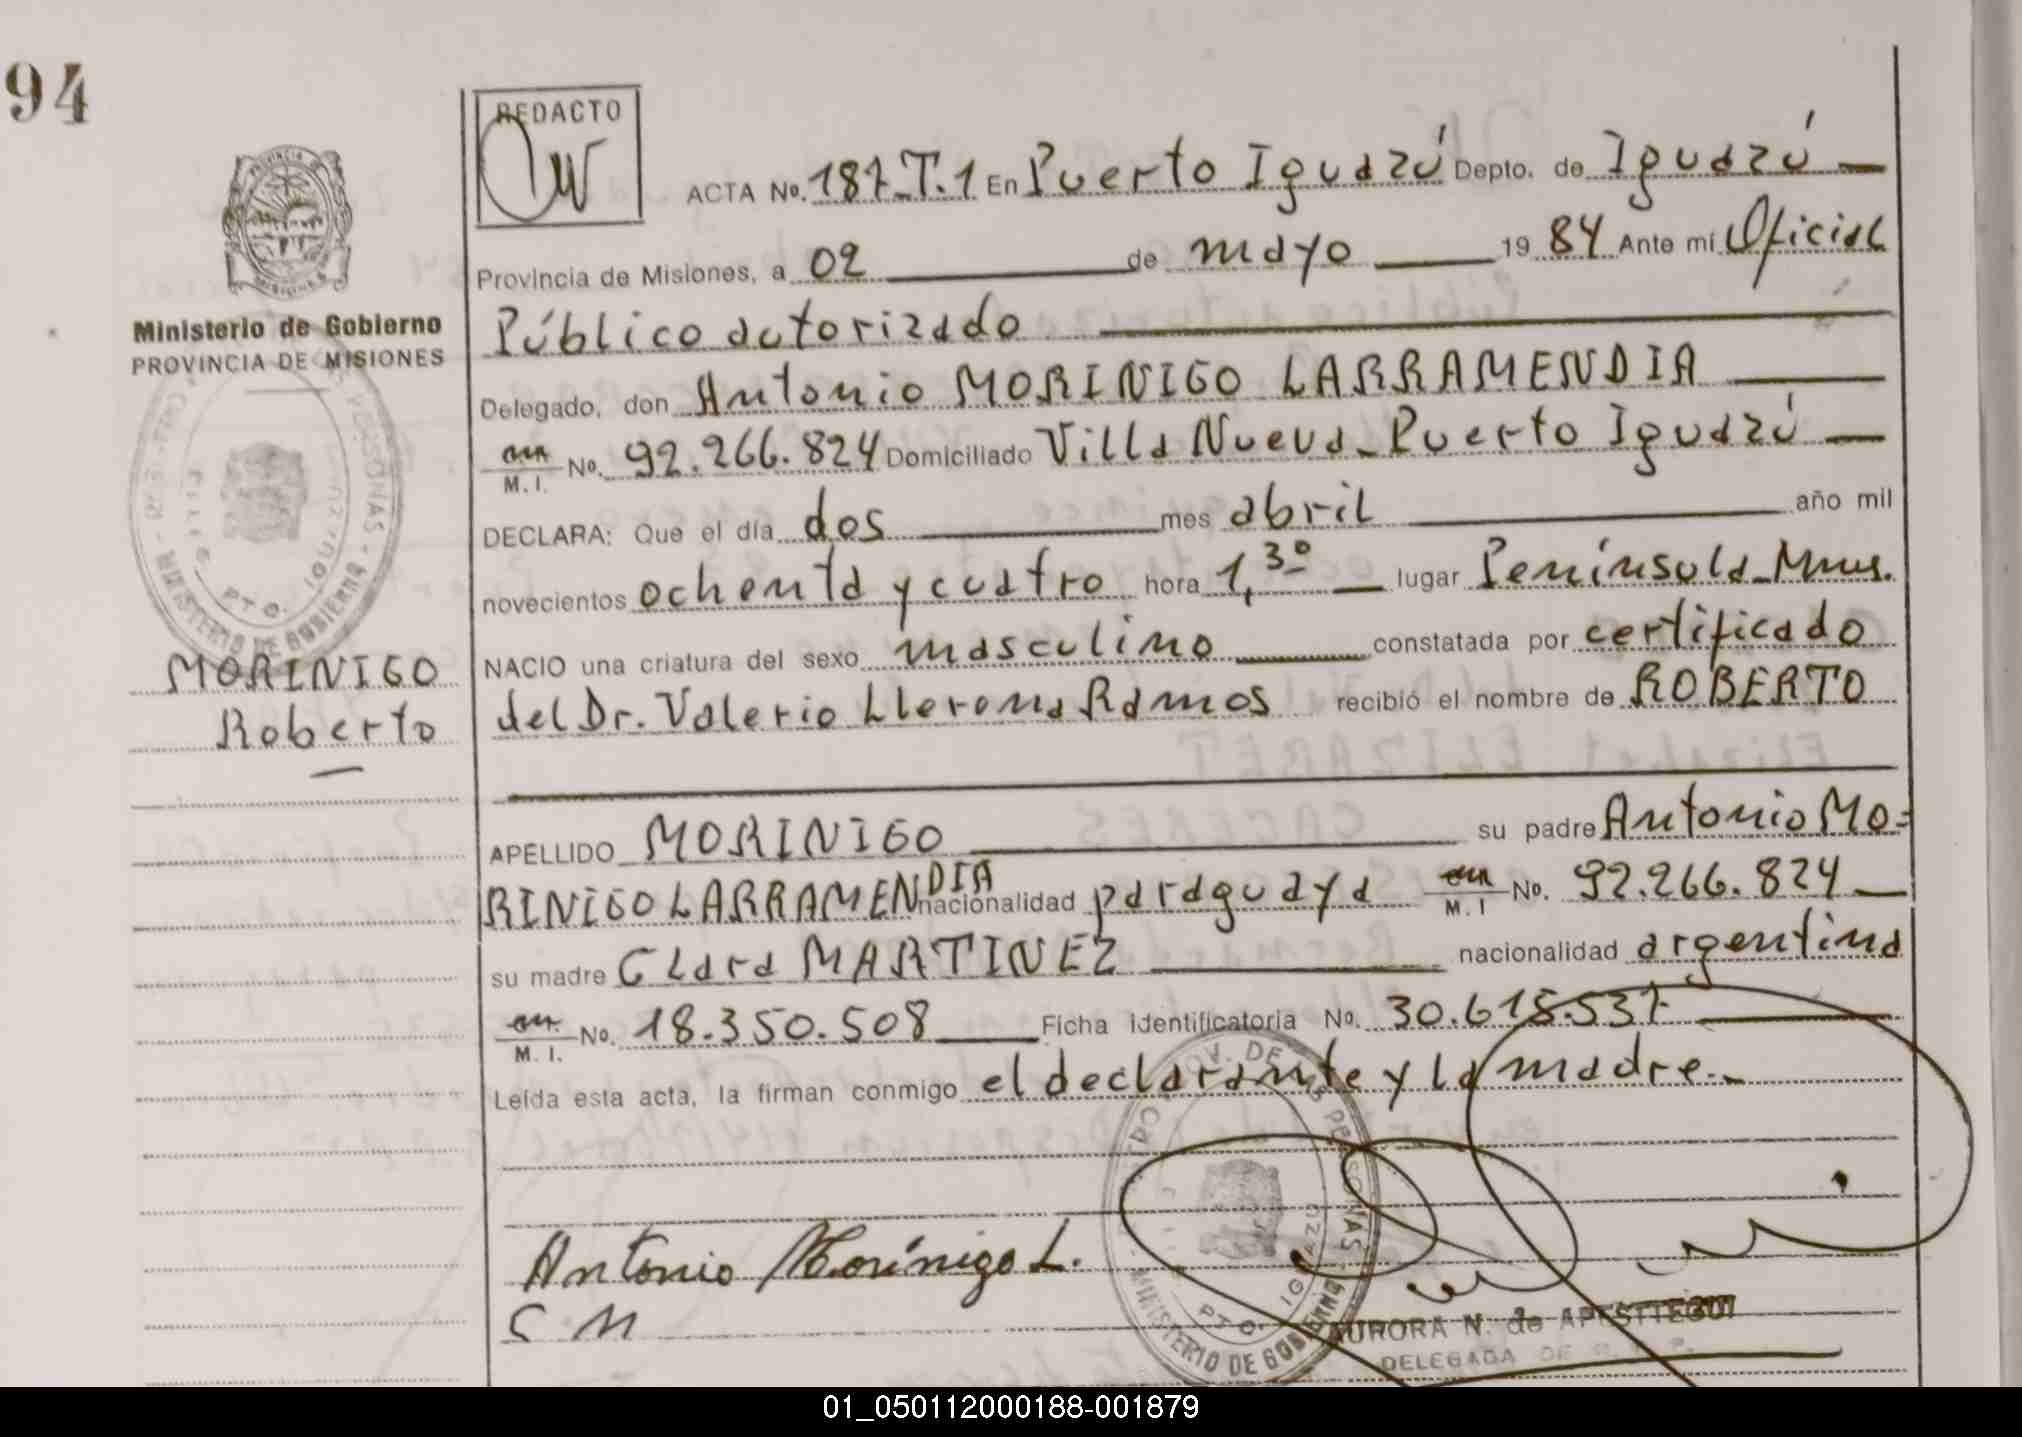 94
REDACTO
PROVINCIA DE
MISIONES
ACTA No. 187_T.1 En Puerto Iguazú Depto. de Iguazú
Provincia de Misiones, a 02 de mayo 19 84 Ante mí Oficial
Público autorizado
Delegado, don Antonio MORINIGO LARRAMENDIA
M. I. No. 92.266.824 Domiciliado Villa Nueva_Puerto Iguazú
DECLARA: Que el día dos mes abril año mil
novecientos ochenta y cuatro hora 1,30 lugar Península_Mnes.
NACIO una criatura del sexo masculino constatada por certificado
del Dr. Valerio Llerena Ramos recibió el nombre de ROBERTO
APELLIDO MORINIGO su padre Antonio MO=
RINIGO LARRAMENDIA nacionalidad paraguaya M. I No. 92.266.824
su madre Clara MARTINEZ nacionalidad argentina
M. I. No. 18.350.508 Ficha identificatoria No. 30.615.537
Leída esta acta, la firman conmigo el declarante y la madre._
Antonio Morínigo L.
C M
Ministerio de Gobierno
PROVINCIA DE MISIONES
MORINIGO
Roberto
PERSONAS - MINISTERIO DE GOBIERNO
PTO. IGUAZU
PROV. DE PERSONAS - MINISTERIO DE GOBIERNO
PTO. IGUAZU
AURORA N. de APESTTEGUI
DELEGADA DE
01_050112000188-001879